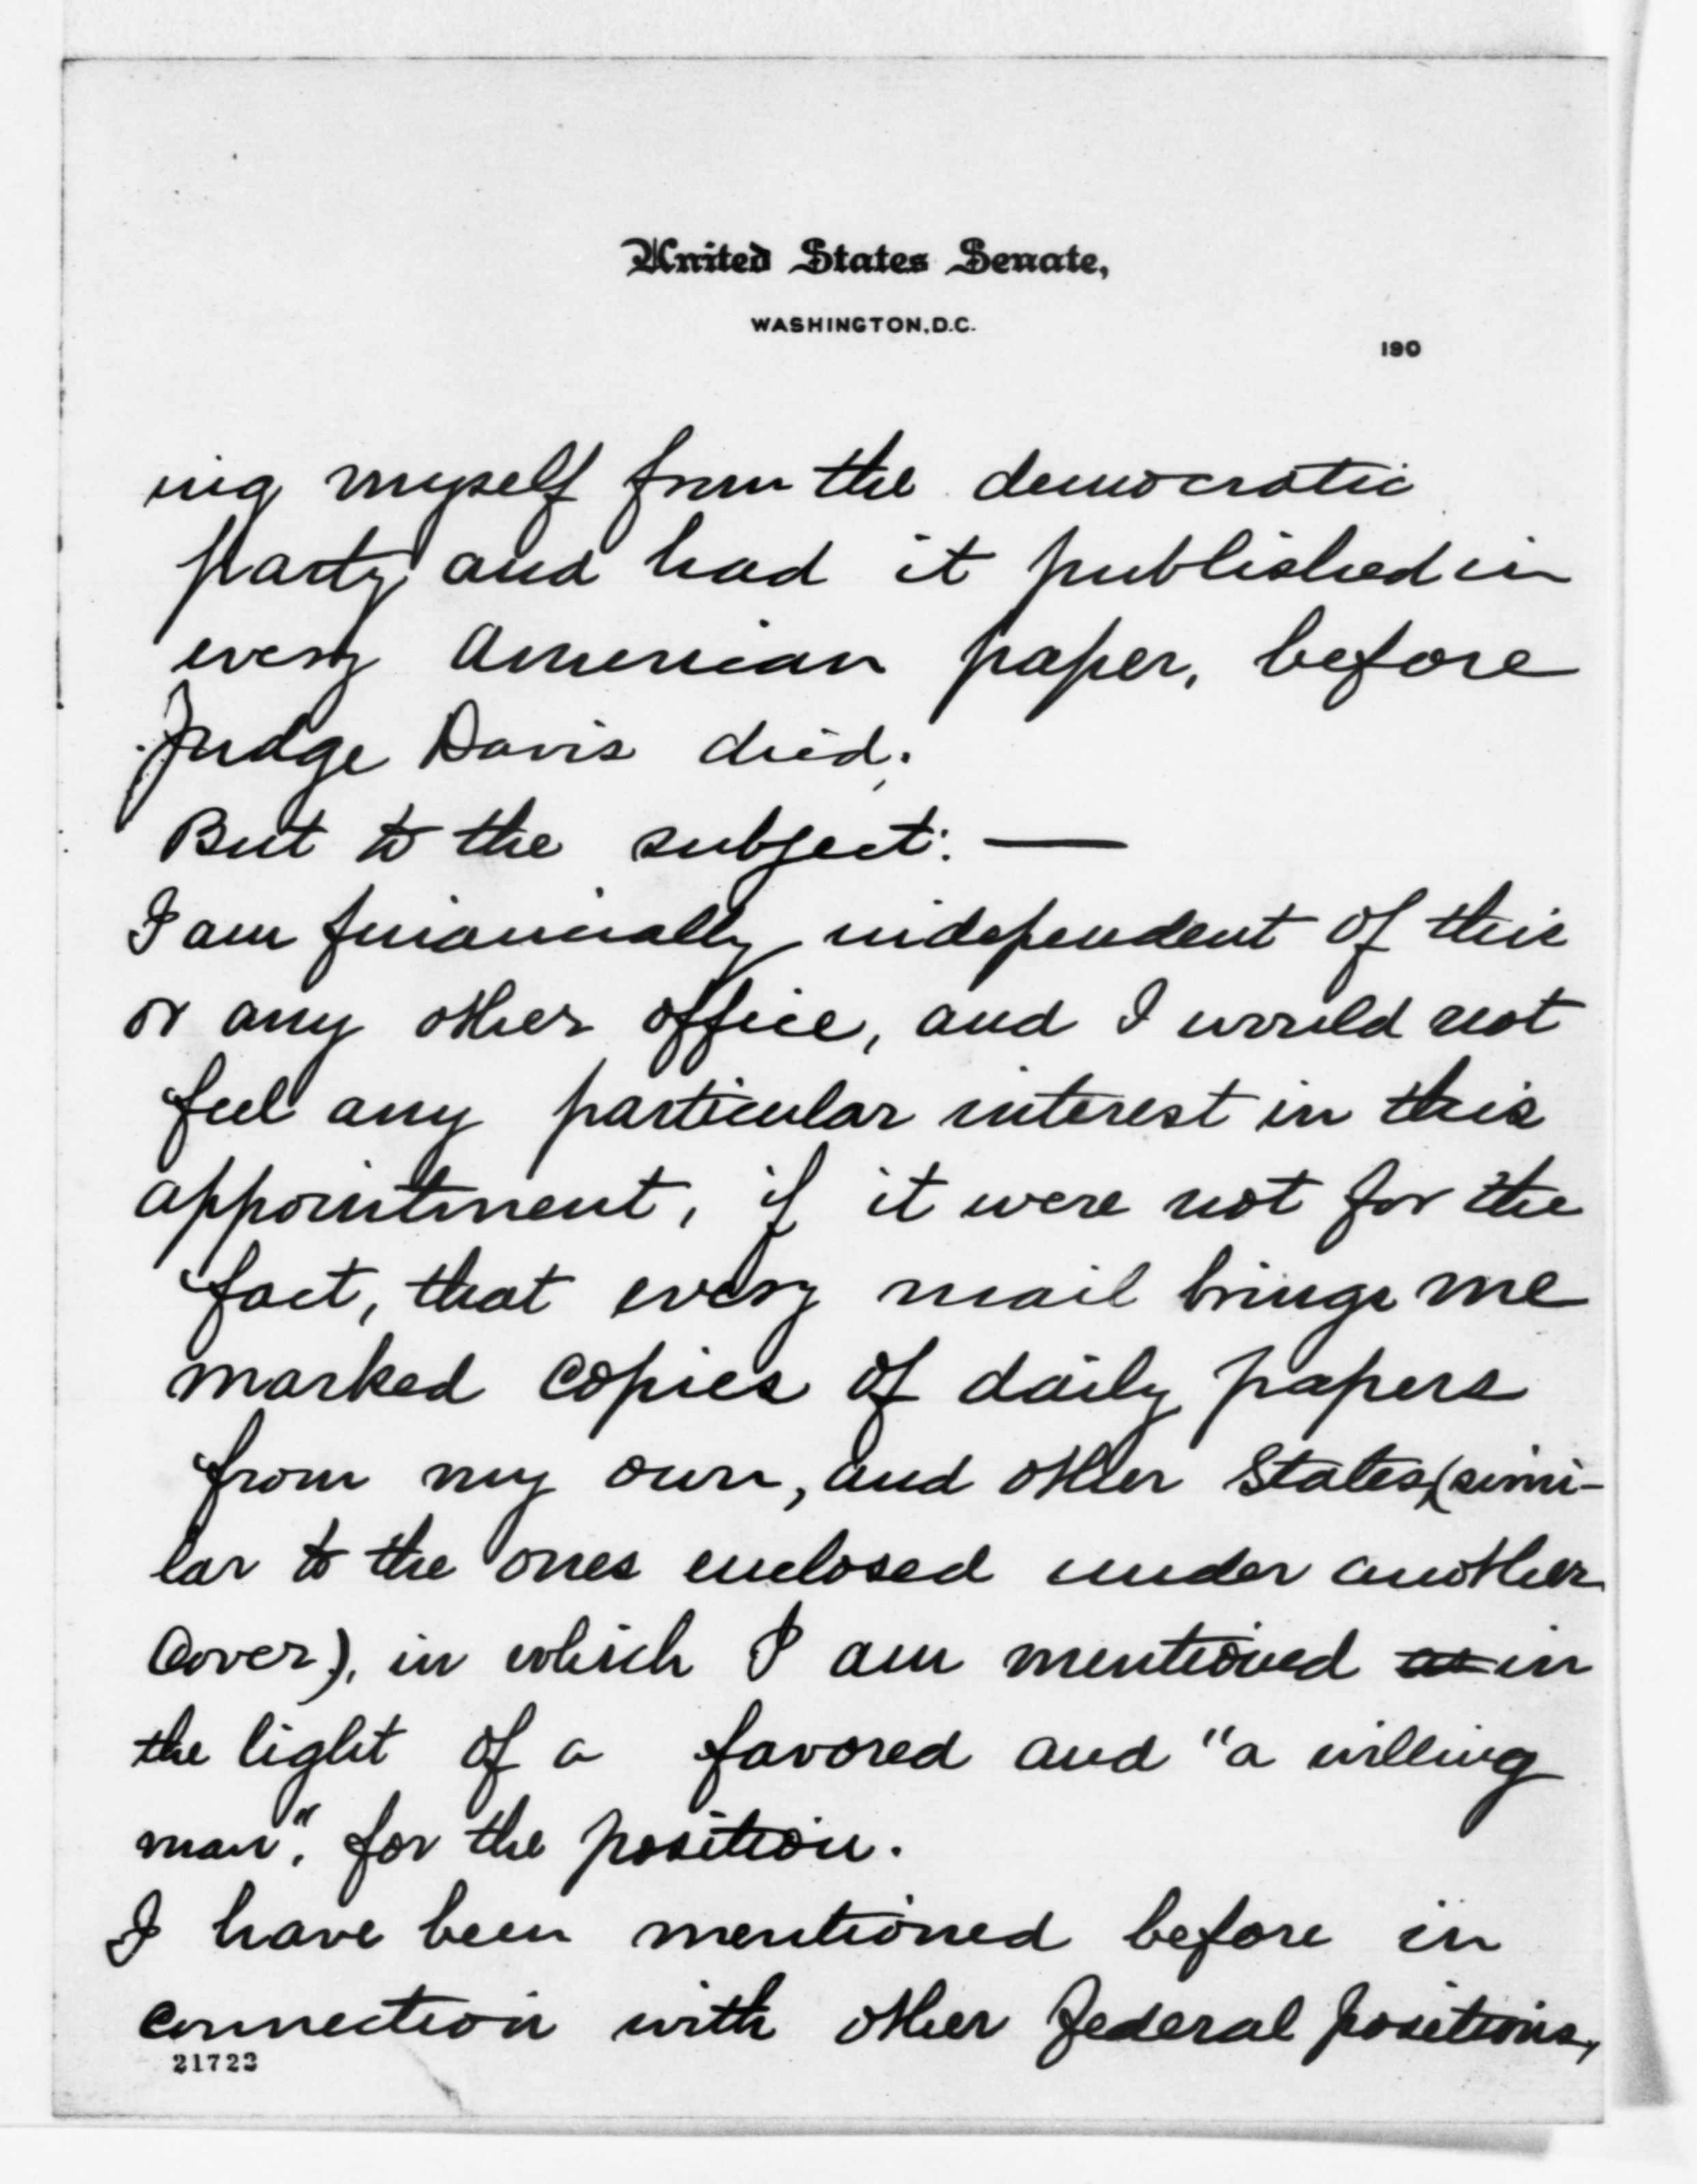 United States Senate,
WASHINGTON, D.C.
190
ing myself from the democratic
party and had it published in
every American paper, before
Judge Davis died.
But to the subject: —
I am financially independent of this
or any other office, and I would not
feel any particular interest in this
appointment, if it were not for the
fact, that every mail brings me
marked copies of daily papers
from my own, and other States, (simi-
lar to the ones enclosed under another
Cover), in which I am mentioned as in
the light of a favored and "a willing
man", for the position.
I have been mentioned before in
connection with other federal positions,
21722